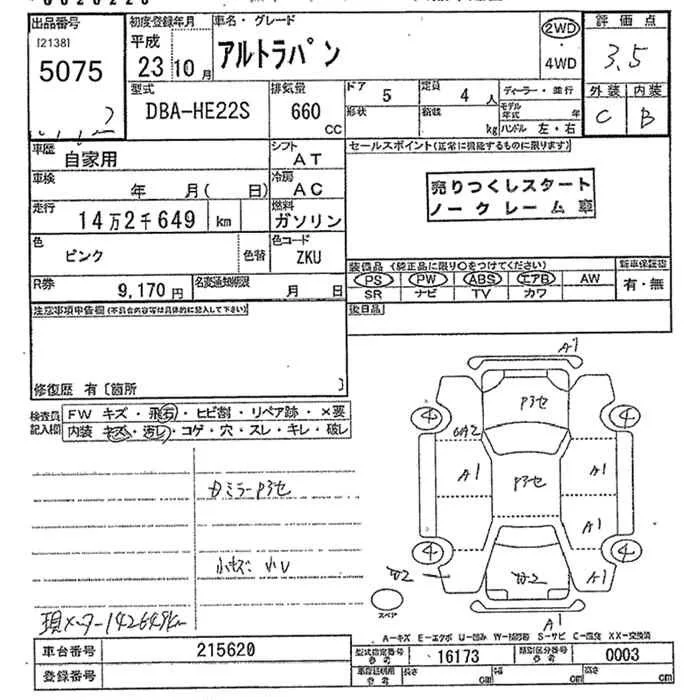 出品番号 初度登録年月 車名・グレード 2WD 評価点
[2138] 平成 アルトラパン ・ 3.5
5075 23年10月 4WD
型式 排気量 ドア 5 定員 4人 ディーラー・並行 外装 内装
DBA-HE22S 660 CC 形状 kg モデル年式 年 C B
ハンドル 左・右
車歴 自家用 シフト AT セールスポイント(正常に機能するものに限ります)
車検 年 月( 日) 冷房 AC 売りつくしスタート
走行 14万2千649 km 燃料 ガソリン ノークレーム車
色 ピンク 色替 色コード ZKU
R券 9,170円 名変通知期限 月 日
装備品(純正品に限り○をつけてください) 新車保証書
PS PW ABS エアB AW 有・無
SR ナビ TV カワ
後日品
注意事項申告欄(不具合内容等は具体的に記入して下さい)
修復歴 有〔箇所 〕
検査員記入欄 FW キズ・飛石・ヒビ割・リペア跡・×要
内装 キズ・汚レ・コゲ・穴・スレ・キレ・破レ
A1
P3セ
4 4
A1 P3セ A1
A1
4 4
A1
A1
スペア
現メーター142649km
A-キズ E-エクボ U-凹み S-サビ C-腐食 XX-交換済
車台番号 215620 型式指定番号 参考 16173 類別区分番号 参考 0003
登録番号 参考 長さ cm 幅 cm 高さ cm